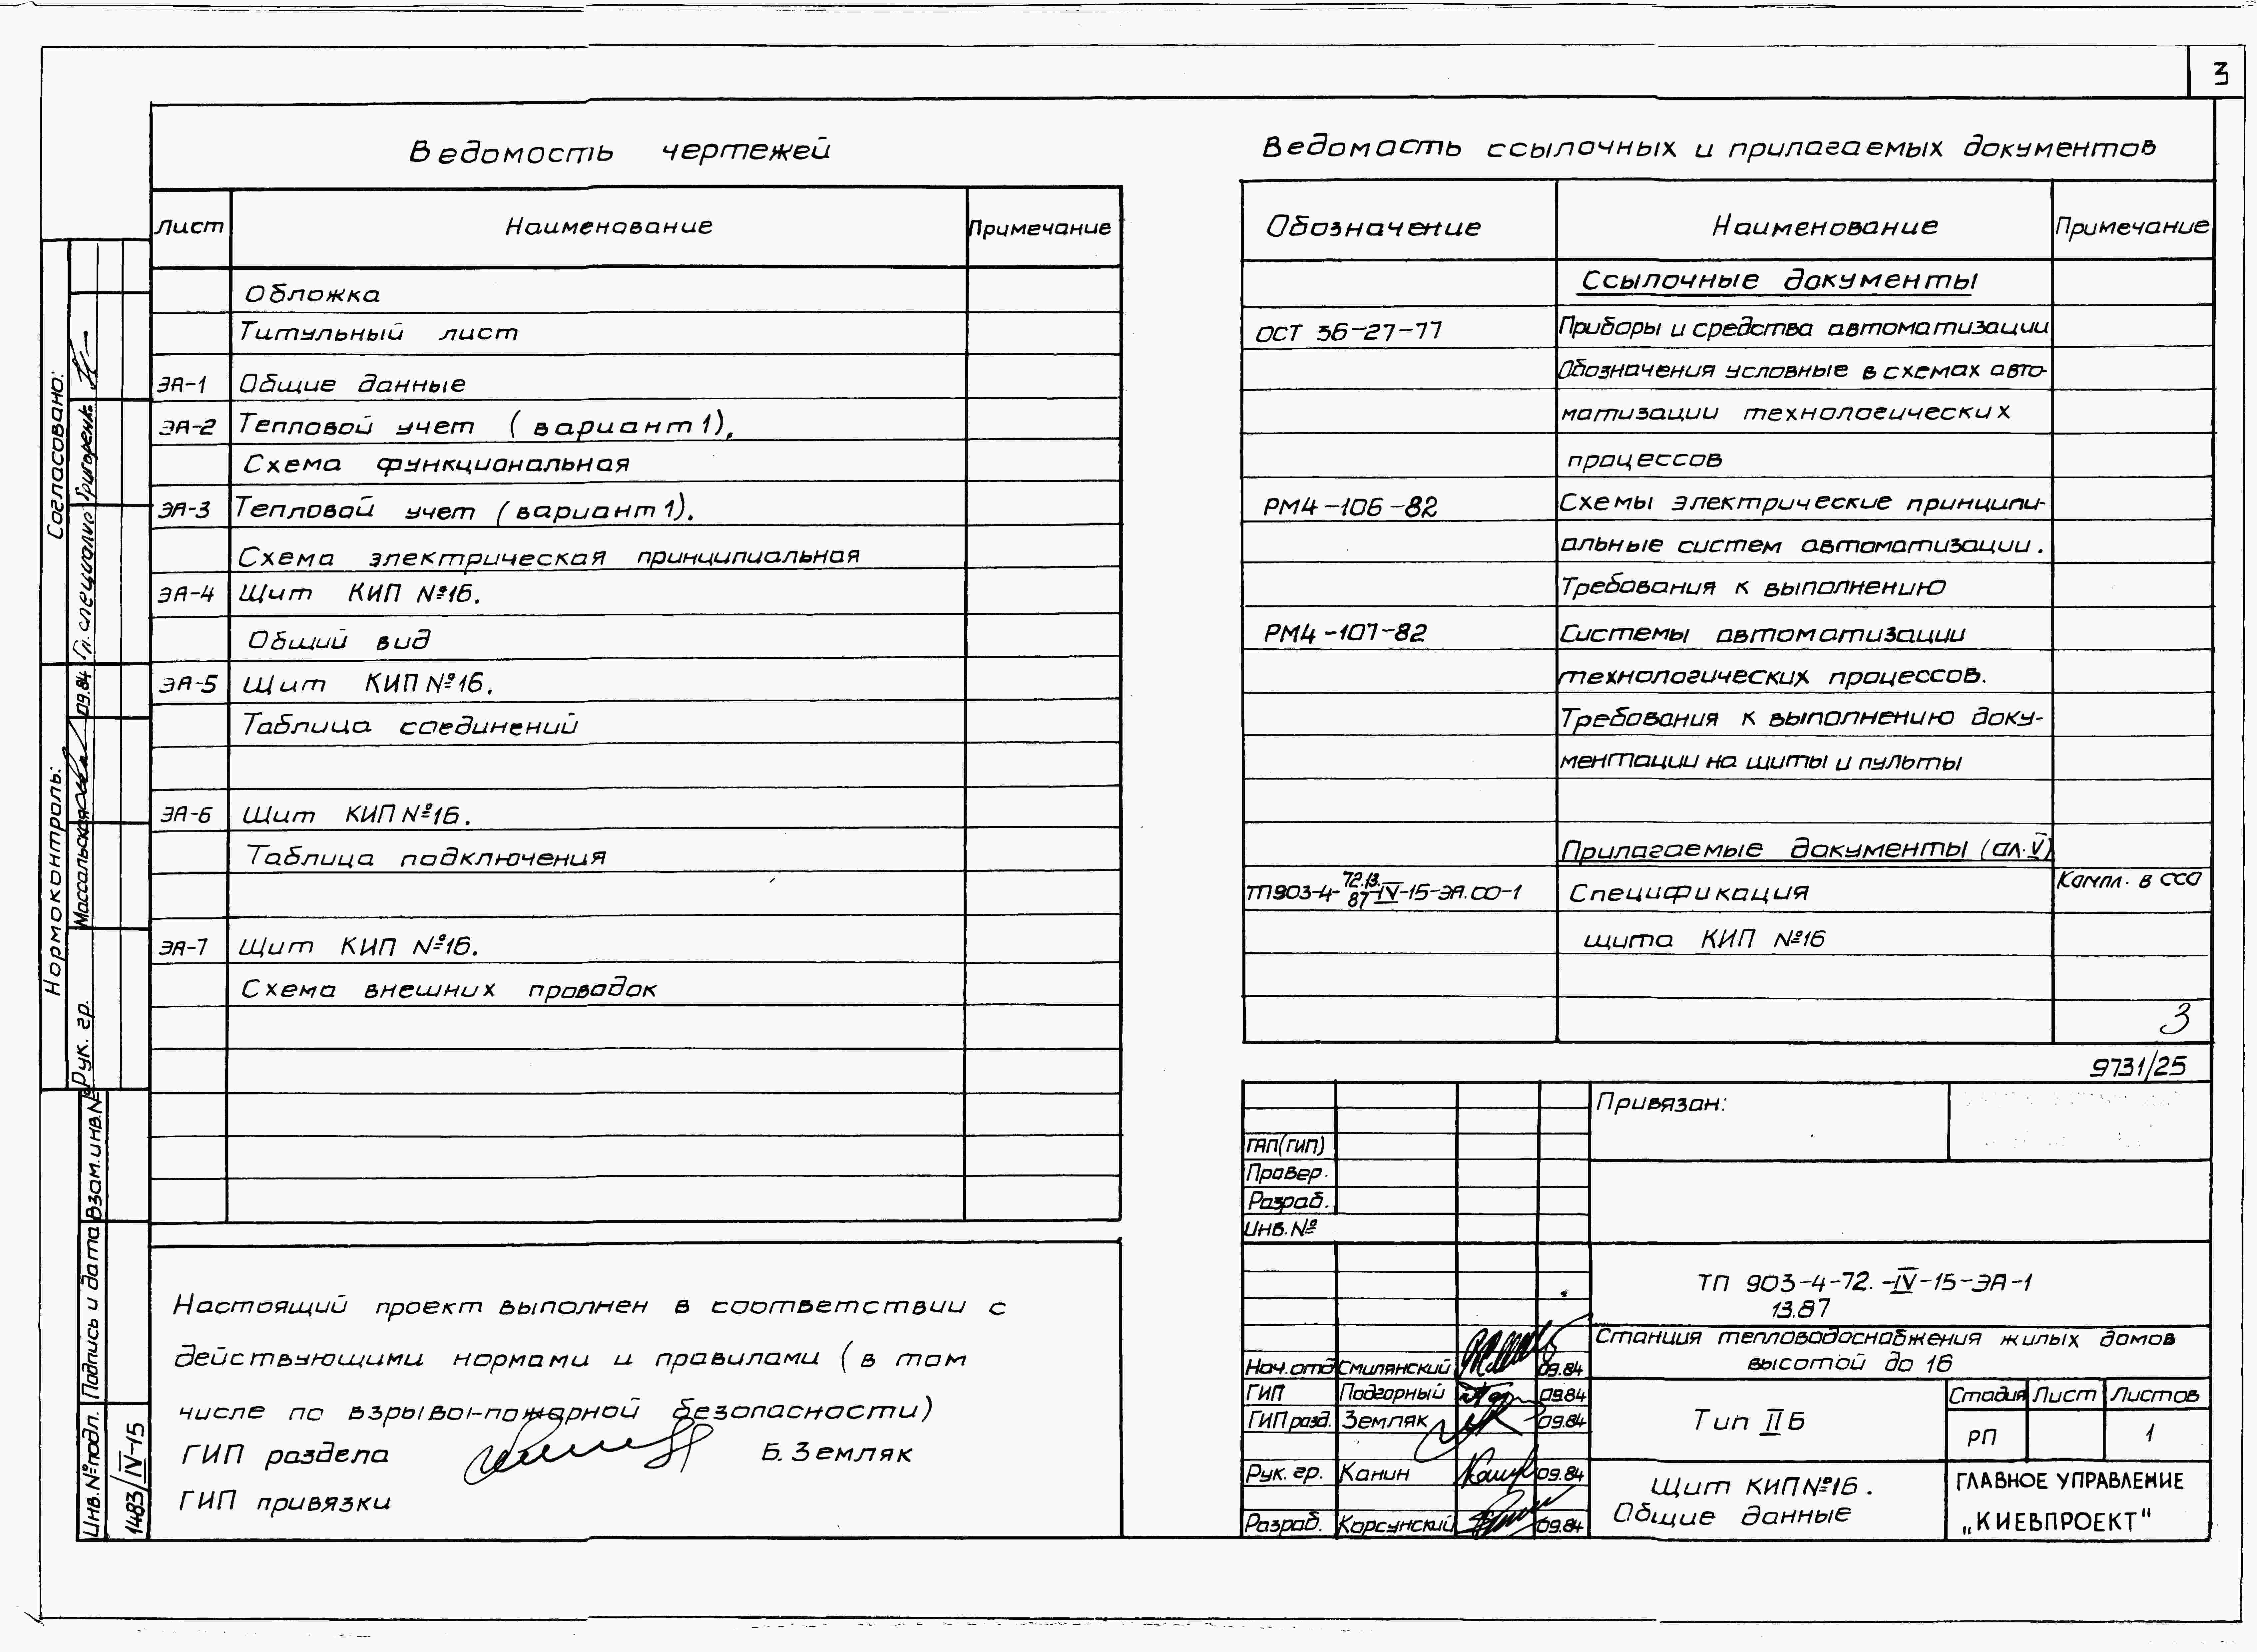 3
Ведомость чертежей
Лист Наименование Примечание
Обложка
Титульный лист
ЭА-1 Общие данные
ЭА-2 Тепловой учет (вариант 1).
Схема функциональная
ЭА-3 Тепловой учет (вариант 1).
Схема электрическая принципиальная
ЭА-4 Щит КИП №16.
Общий вид
ЭА-5 Щит КИП №16.
Таблица соединений
ЭА-6 Щит КИП №16.
Таблица подключения
ЭА-7 Щит КИП №16.
Схема внешних проводок
Настоящий проект выполнен в соответствии с
действующими нормами и правилами (в том
числе по взрыво-пожарной безопасности)
ГИП раздела Б. Земляк
ГИП привязки
Ведомость ссылочных и прилагаемых документов
Обозначение Наименование Примечание
Ссылочные документы
ОСТ 36-27-77 Приборы и средства автоматизации
Обозначения условные в схемах авто-
матизации технологических
процессов
РМ4-106-82 Схемы электрические принципи-
альные систем автоматизации.
Требования к выполнению
РМ4-107-82 Системы автоматизации
технологических процессов.
Требования к выполнению доку-
ментации на щиты и пульты
Прилагаемые документы (ал. V)
ТП903-4-72.13.87-IV-15-ЭА.СО-1 Спецификация Компл. в ссо
щита КИП №16
3
9731/25
Привязан:
ГАП(ГИП)
Провер.
Разраб.
Инв. №
ТП 903-4-72.-IV-15-ЭА-1
13.87
Станция тепловодоснабжения жилых домов
высотой до 16
Нач.отд Смилянский 09.84
ГИП Подгорный 09.84
ГИП разд. Земляк 09.84
Рук. гр. Канин 09.84
Разраб. Корсунский 09.84
Тип II Б
Стадия Лист Листов
РП 1
Щит КИП №16.
Общие данные
ГЛАВНОЕ УПРАВЛЕНИЕ
„КИЕВПРОЕКТ"
Согласовано:
Гл. специалис Григоренко
Нормоконтроль:
Рук. гр. Массальская 09.84
Взам. инв. №
Подпись и дата
Инв. № подл.
1483/IV-15